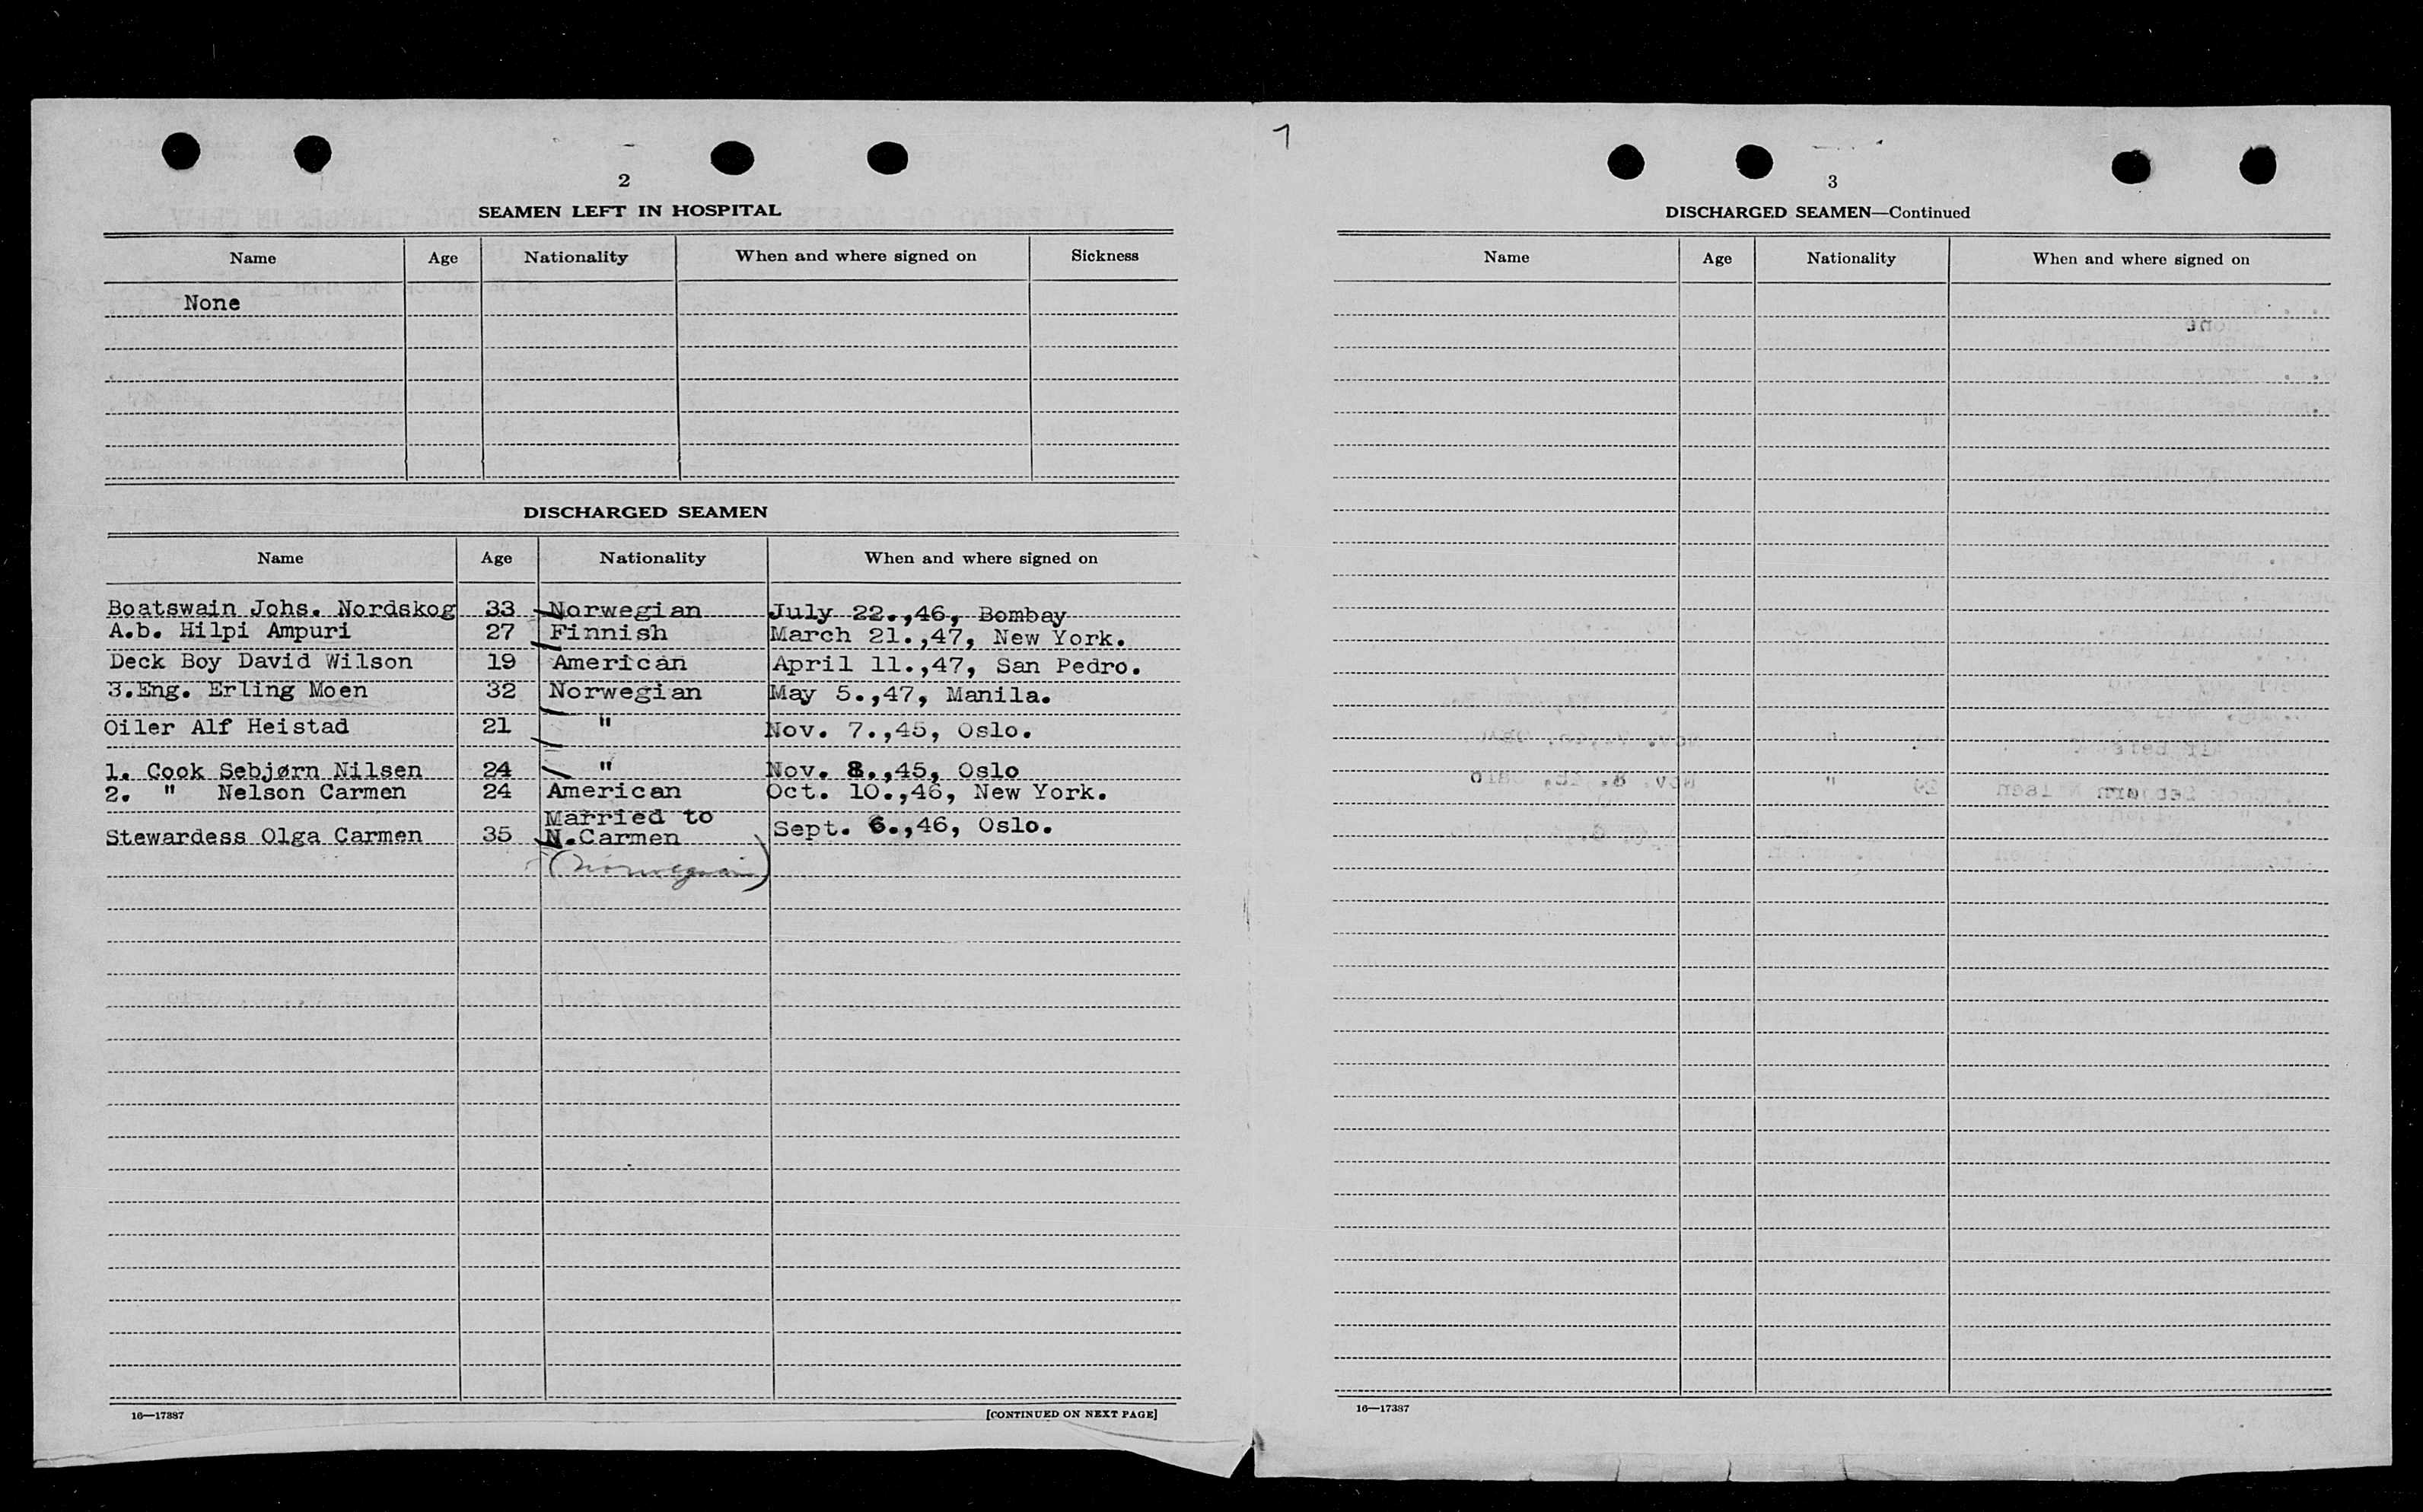 2
SEAMEN LEFT IN HOSPITAL
Name Age Nationality When and where signed on Sickness
None
DISCHARGED SEAMEN
Name Age Nationality When and where signed on
Boatswain Johs. Nordskog 33 Norwegian July 22.,46, Bombay
A.b. Hilpi Ampuri 27 Finnish March 21.,47, New York.
Deck Boy David Wilson 19 American April 11.,47, San Pedro.
3.Eng. Erling Moen 32 Norwegian May 5.,47, Manila.
Oiler Alf Heistad 21 " Nov. 7.,45, Oslo.
1. Cook Sebjørn Nilsen 24 " Nov. 8.,45, Oslo
2. " Nelson Carmen 24 American Oct. 10.,46, New York.
Stewardess Olga Carmen 35 Married to N.Carmen Sept. 6.,46, Oslo.
(Norwegian)
16—17387
[CONTINUED ON NEXT PAGE]
7
3
DISCHARGED SEAMEN—Continued
Name Age Nationality When and where signed on
16—17387